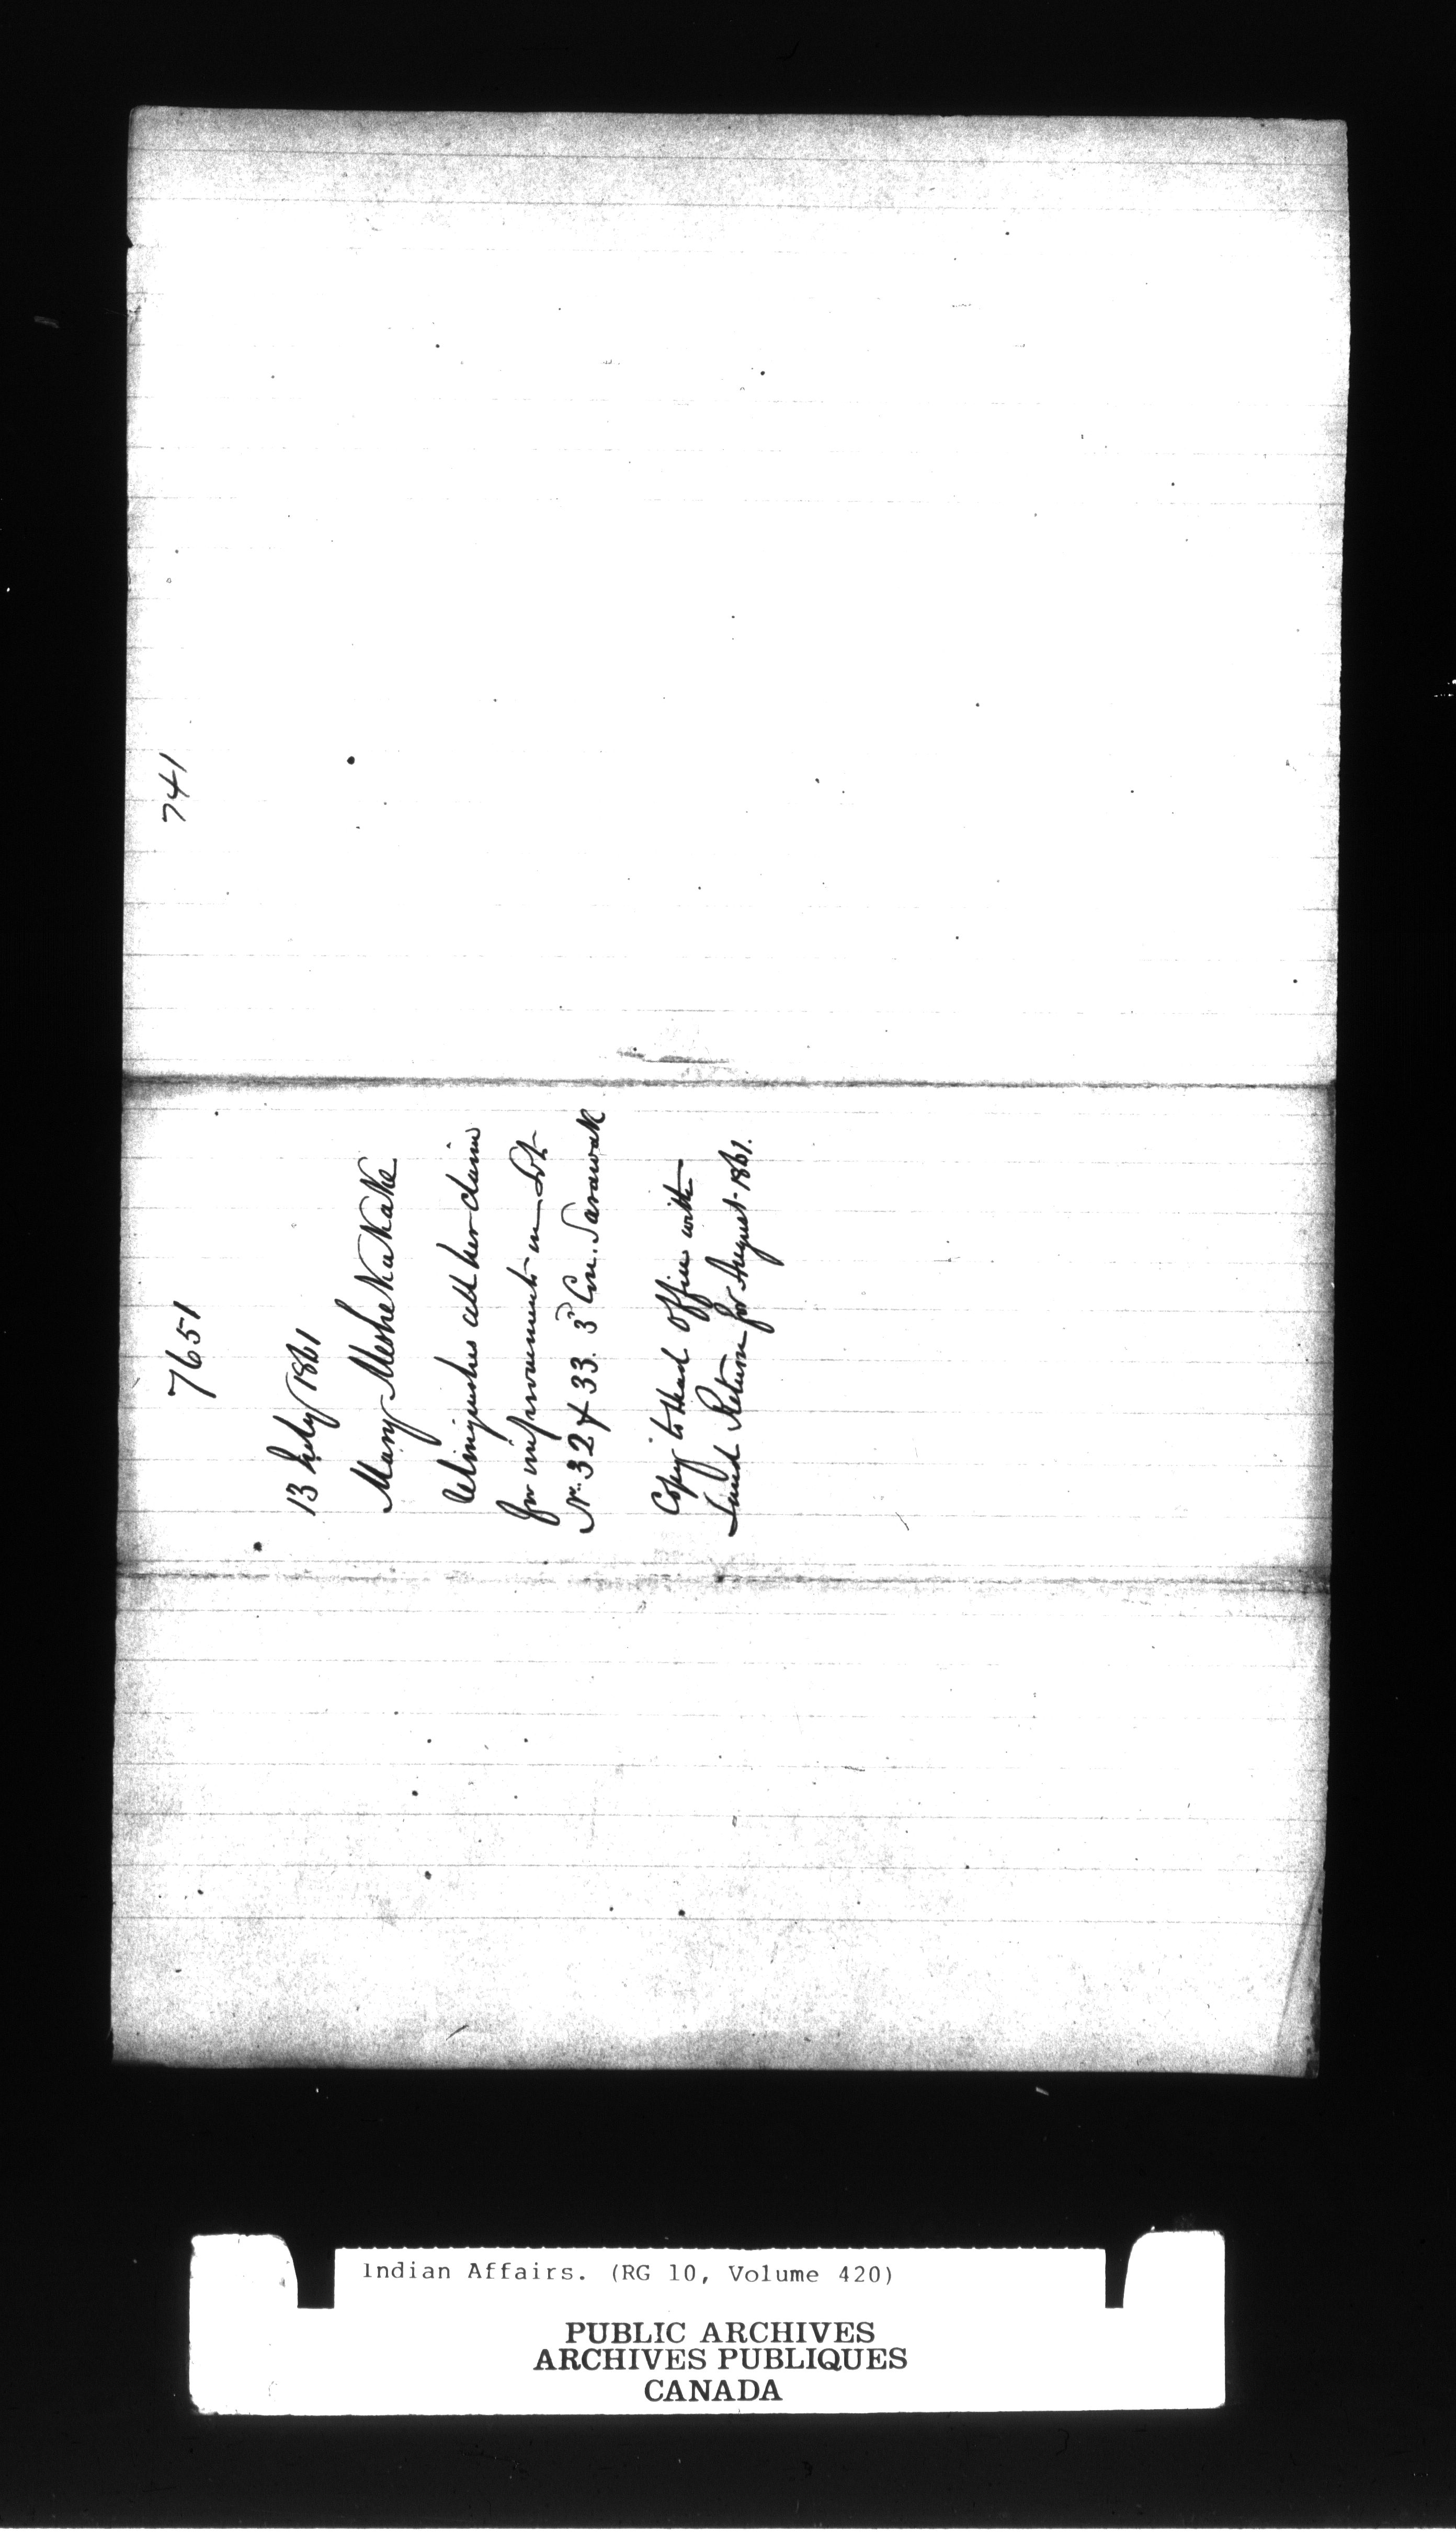 741
7651
13 July 1861
Mary MesheKaKaKe
relinquishes all her claim
for improvements on Lot
No. 32 & 33. 3d Con. Sarawak
Copy to Head Office with
Land Return for August 1861.
Indian Affairs. (RG 10, Volume 420)
PUBLIC ARCHIVES
ARCHIVES PUBLIQUES
CANADA